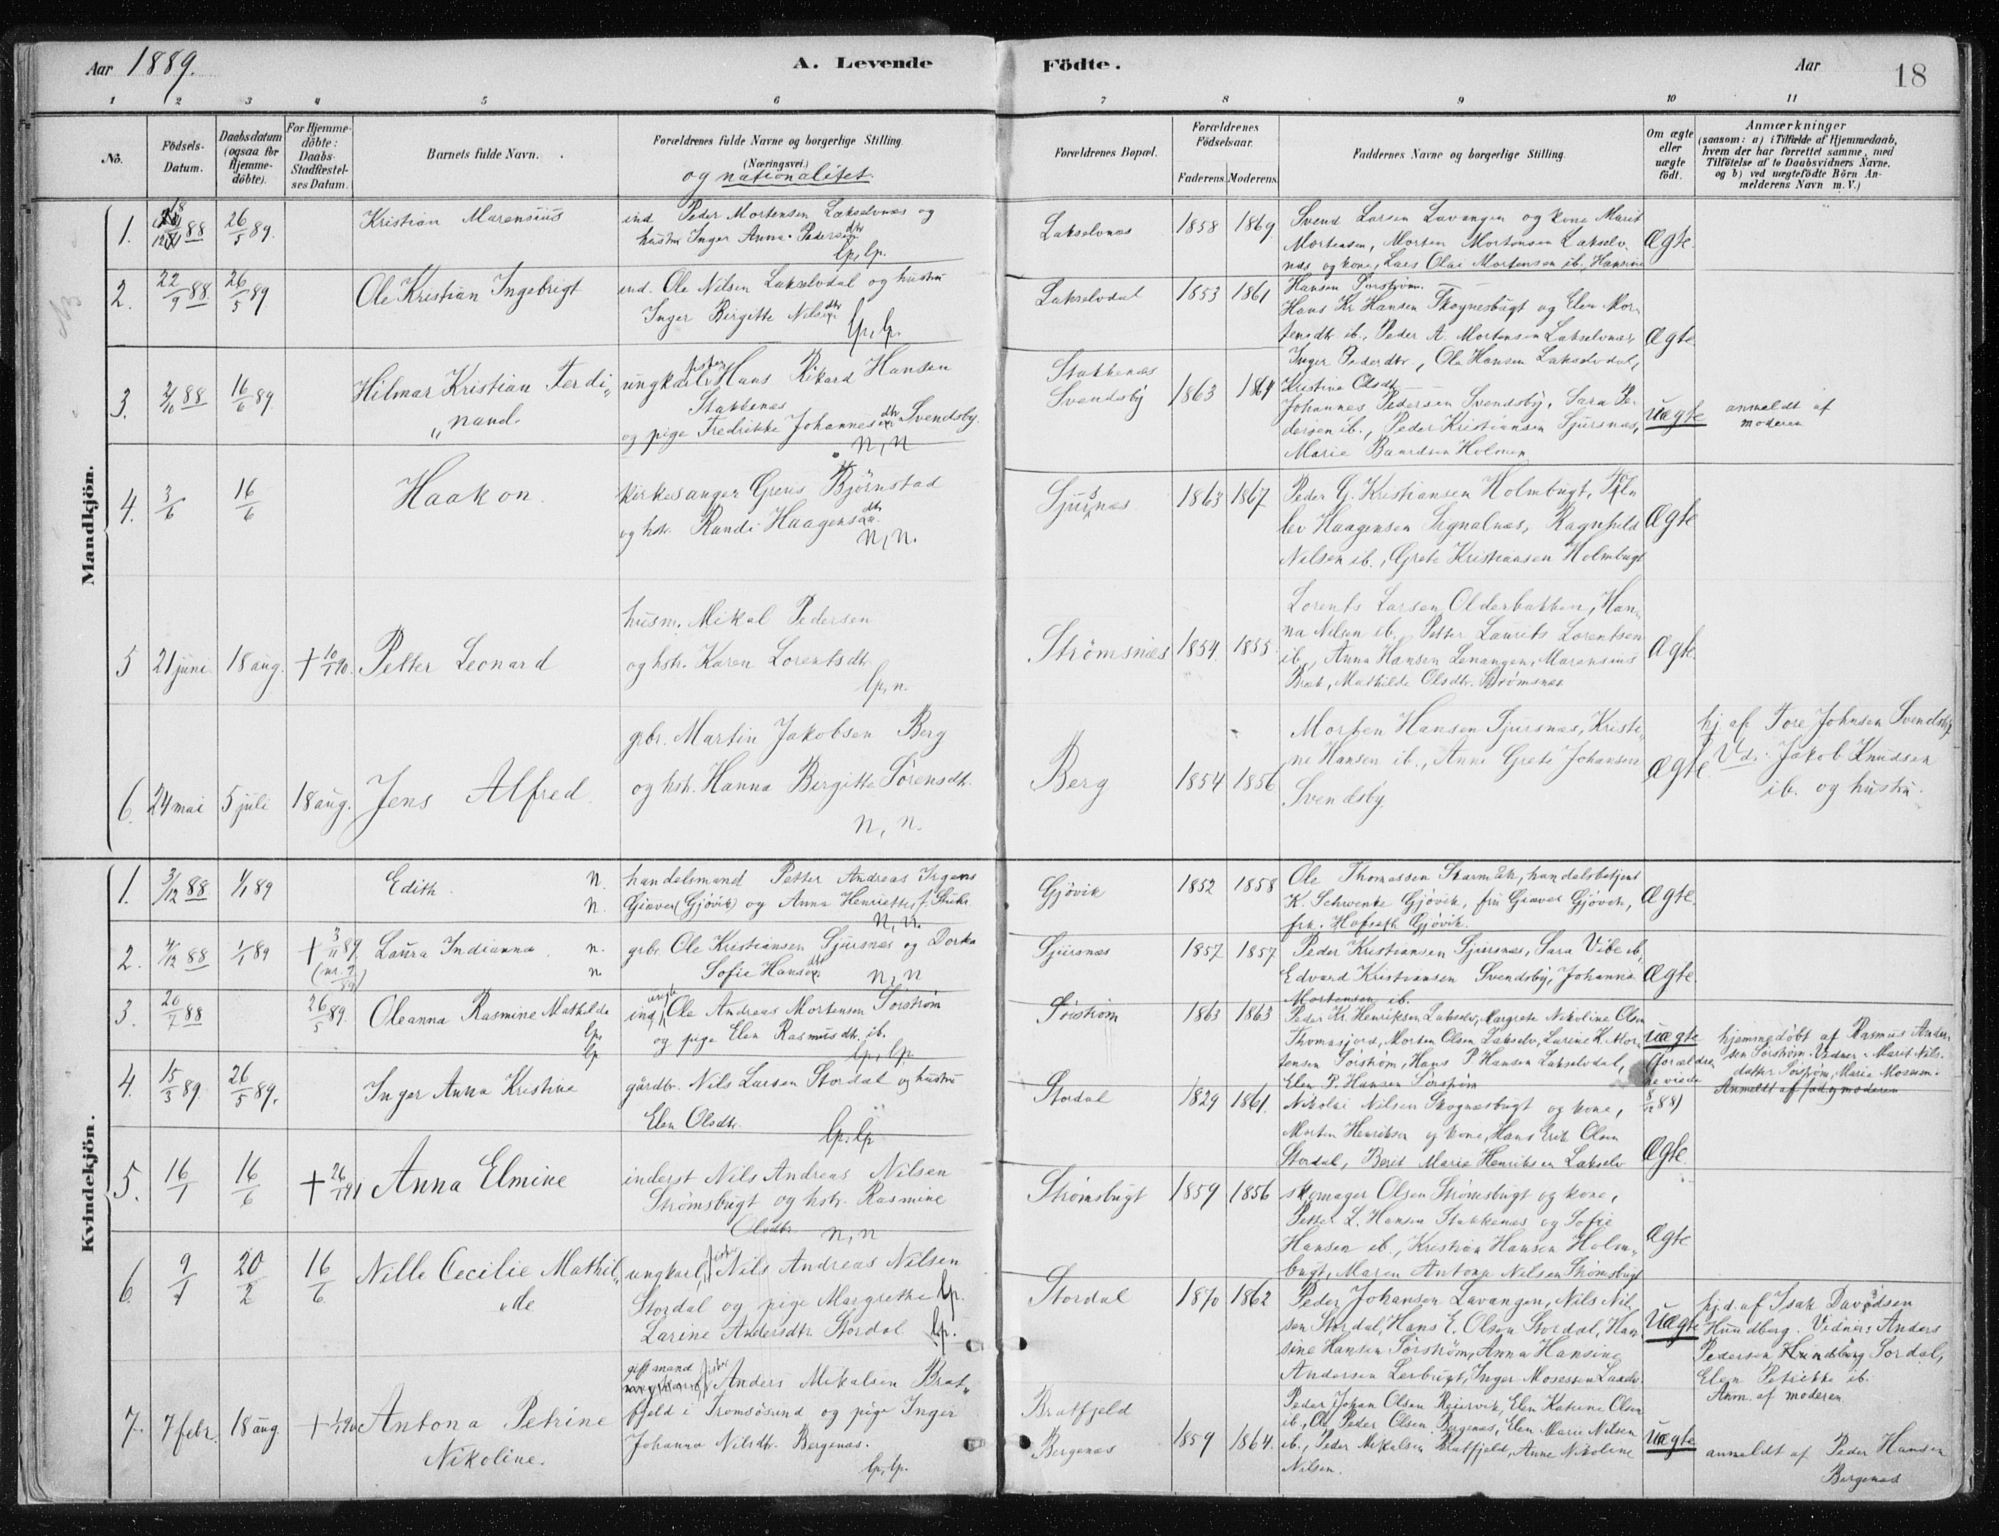 Aar 1889.
A. Levende Födte.
Aar
18
1 2 3 4 5 6 7 8 9 10 11
No.
Födsels-Datum.
Daabsdatum (ogsaa for Hjemme-döbte).
For Hjemme-döbte: Daabs-Stadfæstel-ses Datum.
Barnets fulde Navn.
Forældrenes fulde Navne og borgerlige Stilling
(Næringsvei.)
og nationalitet.
Forældrenes Bopæl.
Forældrenes Födselsaar.
Faderens. Moderens.
Faddernes Navne og borgerlige Stilling.
Om ægte eller uægte födt.
Anmærkninger
(saasom: a) i Tilfælde af Hjemmedaab,
hvem der har forrettet samme, med
Tilföielse af to Daabsvidners Navne,
og b) ved uægtefödte Börn An-
melderens Navn m. V.)
Mandkjön.
1. 88 26/5 89. Kristian Marensius
ind Peder Mortensen Lakselvnæs og
hustru Inger Anna Pedersdtr
lp, lp.
Lakselvnæs 1858 1869
Svend Larsen Lavangen og kone Marit
Mortensen, Morten Mortensen Lakselv
næs og kone, Lars Olai Mortensen ib. Hansine
Hansen Sørstrøm.
Ægte.
2. 22/9 88. 26/5 89 Ole Kristian Ingebrigt
ind. Ole Nilsen Lakselvdal og hustru
Inger Bergitte Nilsdtr
lp, lp.
Lakselvdal 1853 1861
Hans Kr Hansen Skognesbugt og Elen Mor-
tensdtr ib., Peder A. Mortensen Lakselvnæs,
Inger Pedersdtr, Ole Hansen Lakselvdal,
Kristine Olsdtr
Ægte
3. 2/10 88 16/6 89. Hilmar Kristian Ferdi„
„nand.
ungkarl, fisker Hans Rikard Hansen
Stakkenæs
og pige Fredrikke Johannesdtr Svendsby.
n, n
Stakkenæs
Svendsby 1863 1864
Johannes Pedersen Svendsby, Sara Pe-
dersen ib., Peder Kristiansen Sjursnæs,
Marie Baardsen Holmen
uægte
anmeldt af
moderen
4. 3/6 16/6 Haakon.
kirkesanger Greris Bjørnstad
og hstr. Randi Haagensdtr.
n, n.
Sjursnæs 1863 1867
Peder G. Kristiansen Holmbugt,
lev Haagensen Segnalnæs, Ragnhild
Nilsen ib., Grete Kristiansen Holmbugt
Ægte
5 21 juni 18 aug. + 10/1 90. Petter Leonard
husm. Mikal Pedersen
og hstr. Karen Lorentsdtr.
lp, n.
Strømsnæs 1854 1855
Lorents Larsen Olderbakken, Han-
na Nilsen ib. Petter Laurits Lorentsen
ib., Anna Hansen Lenangen, Marensius
Mathilde Olsdtr. Strømsnæs
Ægte.
6. 24 mai 5 juli 18 aug. Jens Alfred.
grbr. Martin Jakobsen Berg
og hstr. Hanna Bergitte Sørensdtr.
n, n.
Berg 1854 1856
Morten Hansen Sjursnæs, Kristi-
ne Hansen ib., Anne Grete Johansen
Svendsby
Ægte
hj af Tore Johnsen Svendsby
Vd. Jakob Knudsen
ib. og hustru.
Kvindekjön.
1. 3/12 88 1/1 89 Edith. n.
n.
handelsmand Petter Andreas Irgens
Giæver (Gjøvik) og Anna Henriette f.
n, n.
Gjøvik 1852 1858
Ole Thomassen Skarmæk, handelsbetjent
K. Schwenke Gjøvik, fru Giæver Gjøvik,
frk. Hofseth Gjøvik.
Ægte.
2. 4/12 88 1/1 89 + 3/11 89. (nr. 9/89) Laura Indianna n.
n
grbr. Ole Kristiansen Sjursnæs og Dorka
Sofie Hansdtr
n, n
Sjursnæs 1857 1857
Peder Kristiansen Sjursnæs, Sara Vibe ib
Edvard Kristiansen Svendsby, Johanna
Mortensen ib.
Ægte
3. 20/7 88 26/5 89. Oleanna Rasmine Mathilde
lp,
lp
ind ungk. Ole Andreas Mortensen Sørstrøm
og pige Elen Rasmusdtr. ib.
lp, lp.
Sørstrøm 1863 1863
Peder Kr. Henriksen Lakselv, Margrete Nikoline Olsen
Thomasjord, Morten Olsen Lakselv, Larine K. Mor-
tensen Sørstrøm, Hans P Hansen Lakselvdal,
Elen P. Hansen Sørstrøm
uægte
(forældrene
88)
hjemmedøbt af Rasmus Ander-
sen Sørstrøm. Vidner: Marit Nils-
datter Sørstrøm, Maria
Anmeldt af fad og moderen
4. 15/3 89. 26/5 89. Inger Anna Kristine
gårdbr. Nils Larsen Stordal og hustru
Elen Olsdtr.
lp, lp
Stordal 1829 1861.
Nikolai Nilsen Skognæsbugt og kone,
Morten Henriksen og kone, Hans Erik Olsen
Stordal, Berit Marie Henriksen Lakselv
Ægte.
5. 16/1 16/6 + 26/1 91 Anna Elmine
inderst Nils Andreas Nilsen
Strømsbugt og hstr. Rasmine
Olsdtr. n, n
Strømsbugt 1859 1856
skomager Olsen Strømsbugt og kone,
Petter L. Hansen Stakkenæs og Sofie
Hansen ib., Kristian Hansen Holm-
bugt, Maren Antona Nilsen Strømsbugt
Ægte
6. 9/1 20/2 16/6 Nille Cecilie Mathil„
„de
ungkarl, fisker Nils Andreas Nilsen
Stordal og pige Margrethe lp.
Larine Andersdtr Stordal lp.
Stordal 1870 1862
Peder Johansen Lavangen, Nils Nil-
sen Stordal, Hans E. Olsen Stordal, Han-
sine Hansen Sørstrøm, Anna Hansine
Andersen Lerbugt, Inger Mosessen
Uægte
hj.d. af Isak Davidsen
Hundberg. Vidner: Anders
Pedersen Hundberg Sordal,
Elen ib.
Anm. af moderen.
7. 7 febr. 18 aug + 90 Antona Petrine
Nikoline.
gift mand fisker Anders Mikalsen Brat„
fjeld i Tromsøsund og pige Inger
Johanna Nilsdtr. Bergenæs.
lp, lp.
Bratfjeld
Bergenæs 1859 1864.
Peder Johan Olsen Reiervik, Elen Katrine Olsen
ib., Ole Peder Olsen Bergenæs, Elen Marie Nilsen
ib., Peder Mikalsen Bratfjeld, Anne Nikoline
Nilsen.
Uægte
anmeldt af Peder Hansen
Bergenæs